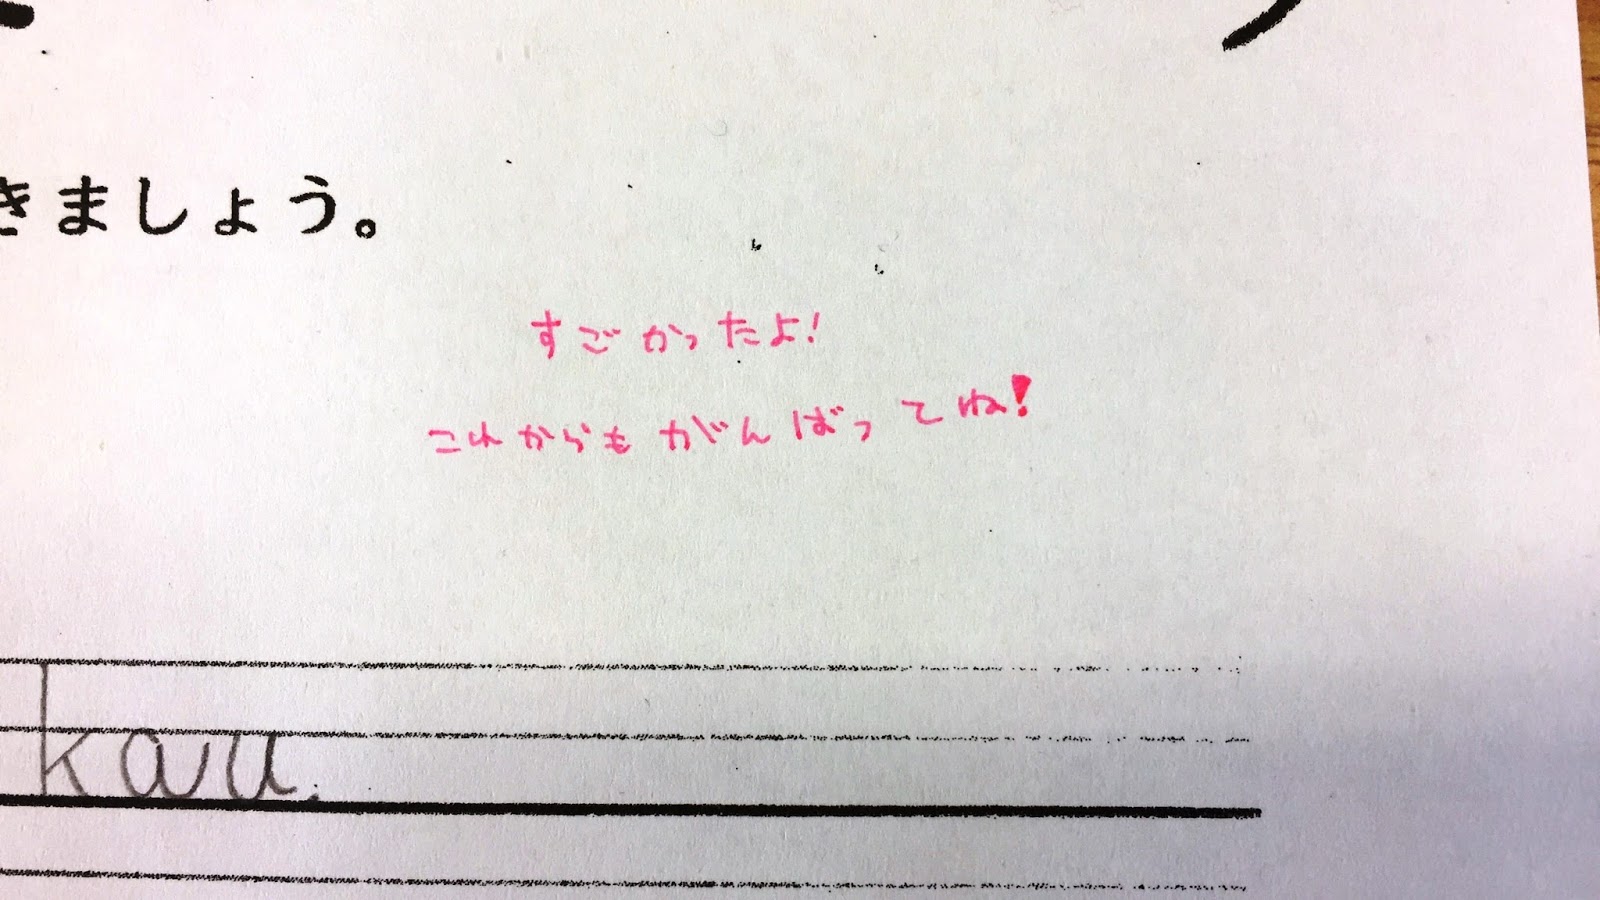 きましょう。
すごかったよ!
これからもがんばってね!
kau.